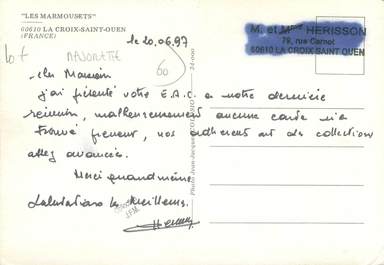 "LES MARMOUSETS"
60610 LA CROIX-SAINT-OUEN
(FRANCE)
le 20.06.97
M. et Mme HERISSON
79, rue Carnot
60610 LA CROIX SAINT OUEN
60
cher Monsieur
j'ai présenté votre E.A.C. a notre dernière
réunion, malheureusement aucune carte n'a
trouvé preneur, nos adhérents ont des collections
assez avancées.
Merci quand même
Salutations les meilleures.
24-000
Photo Jean-Jacques